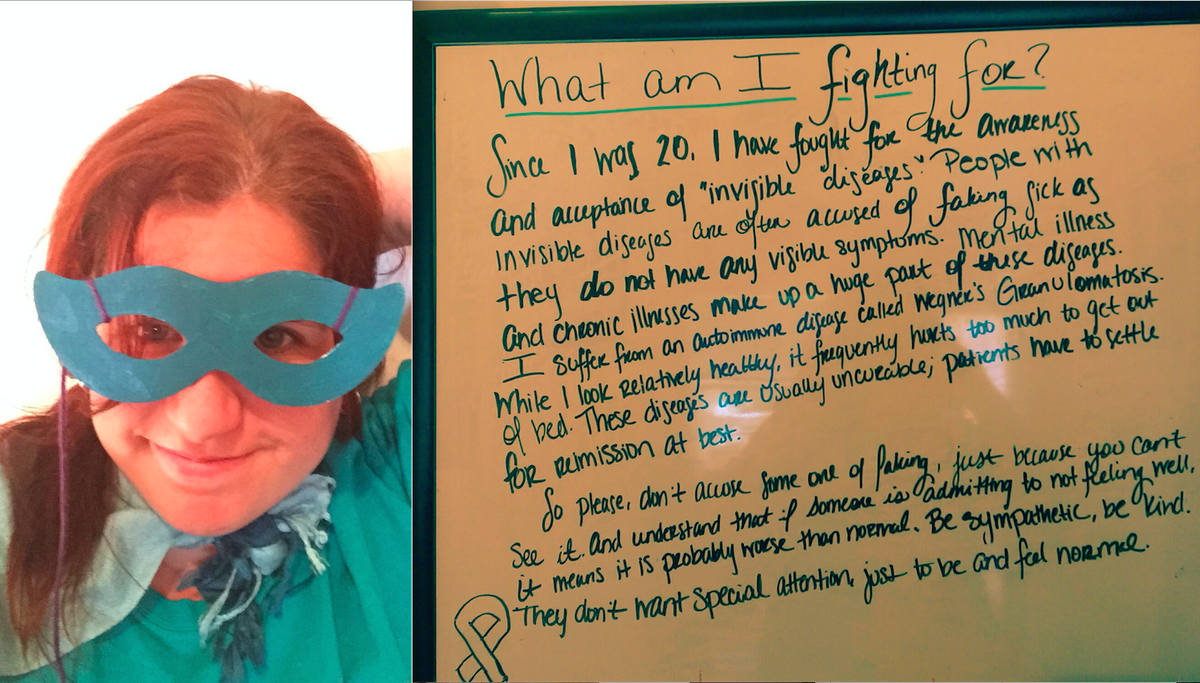 What am I fighting for?
Since I was 20, I have fought for the awareness
and acceptance of "invisible diseases." People with
invisible diseases are often accused of faking sick as
they do not have any visible symptoms. Mental illness
and chronic illnesses make up a huge part of these diseases.
I suffer from an autoimmune disease called Wegner's Granulomatosis.
While I look relatively healthy, it frequently hurts too much to get out
of bed. These diseases are usually uncureable; patients have to settle
for remission at best.
So please, don't accuse some one of faking, just because you can't
see it. And understand that if someone is admitting to not feeling well,
it means it is probably worse than normal. Be sympathetic, be kind.
They don't want special attention, just to be and feel normal.